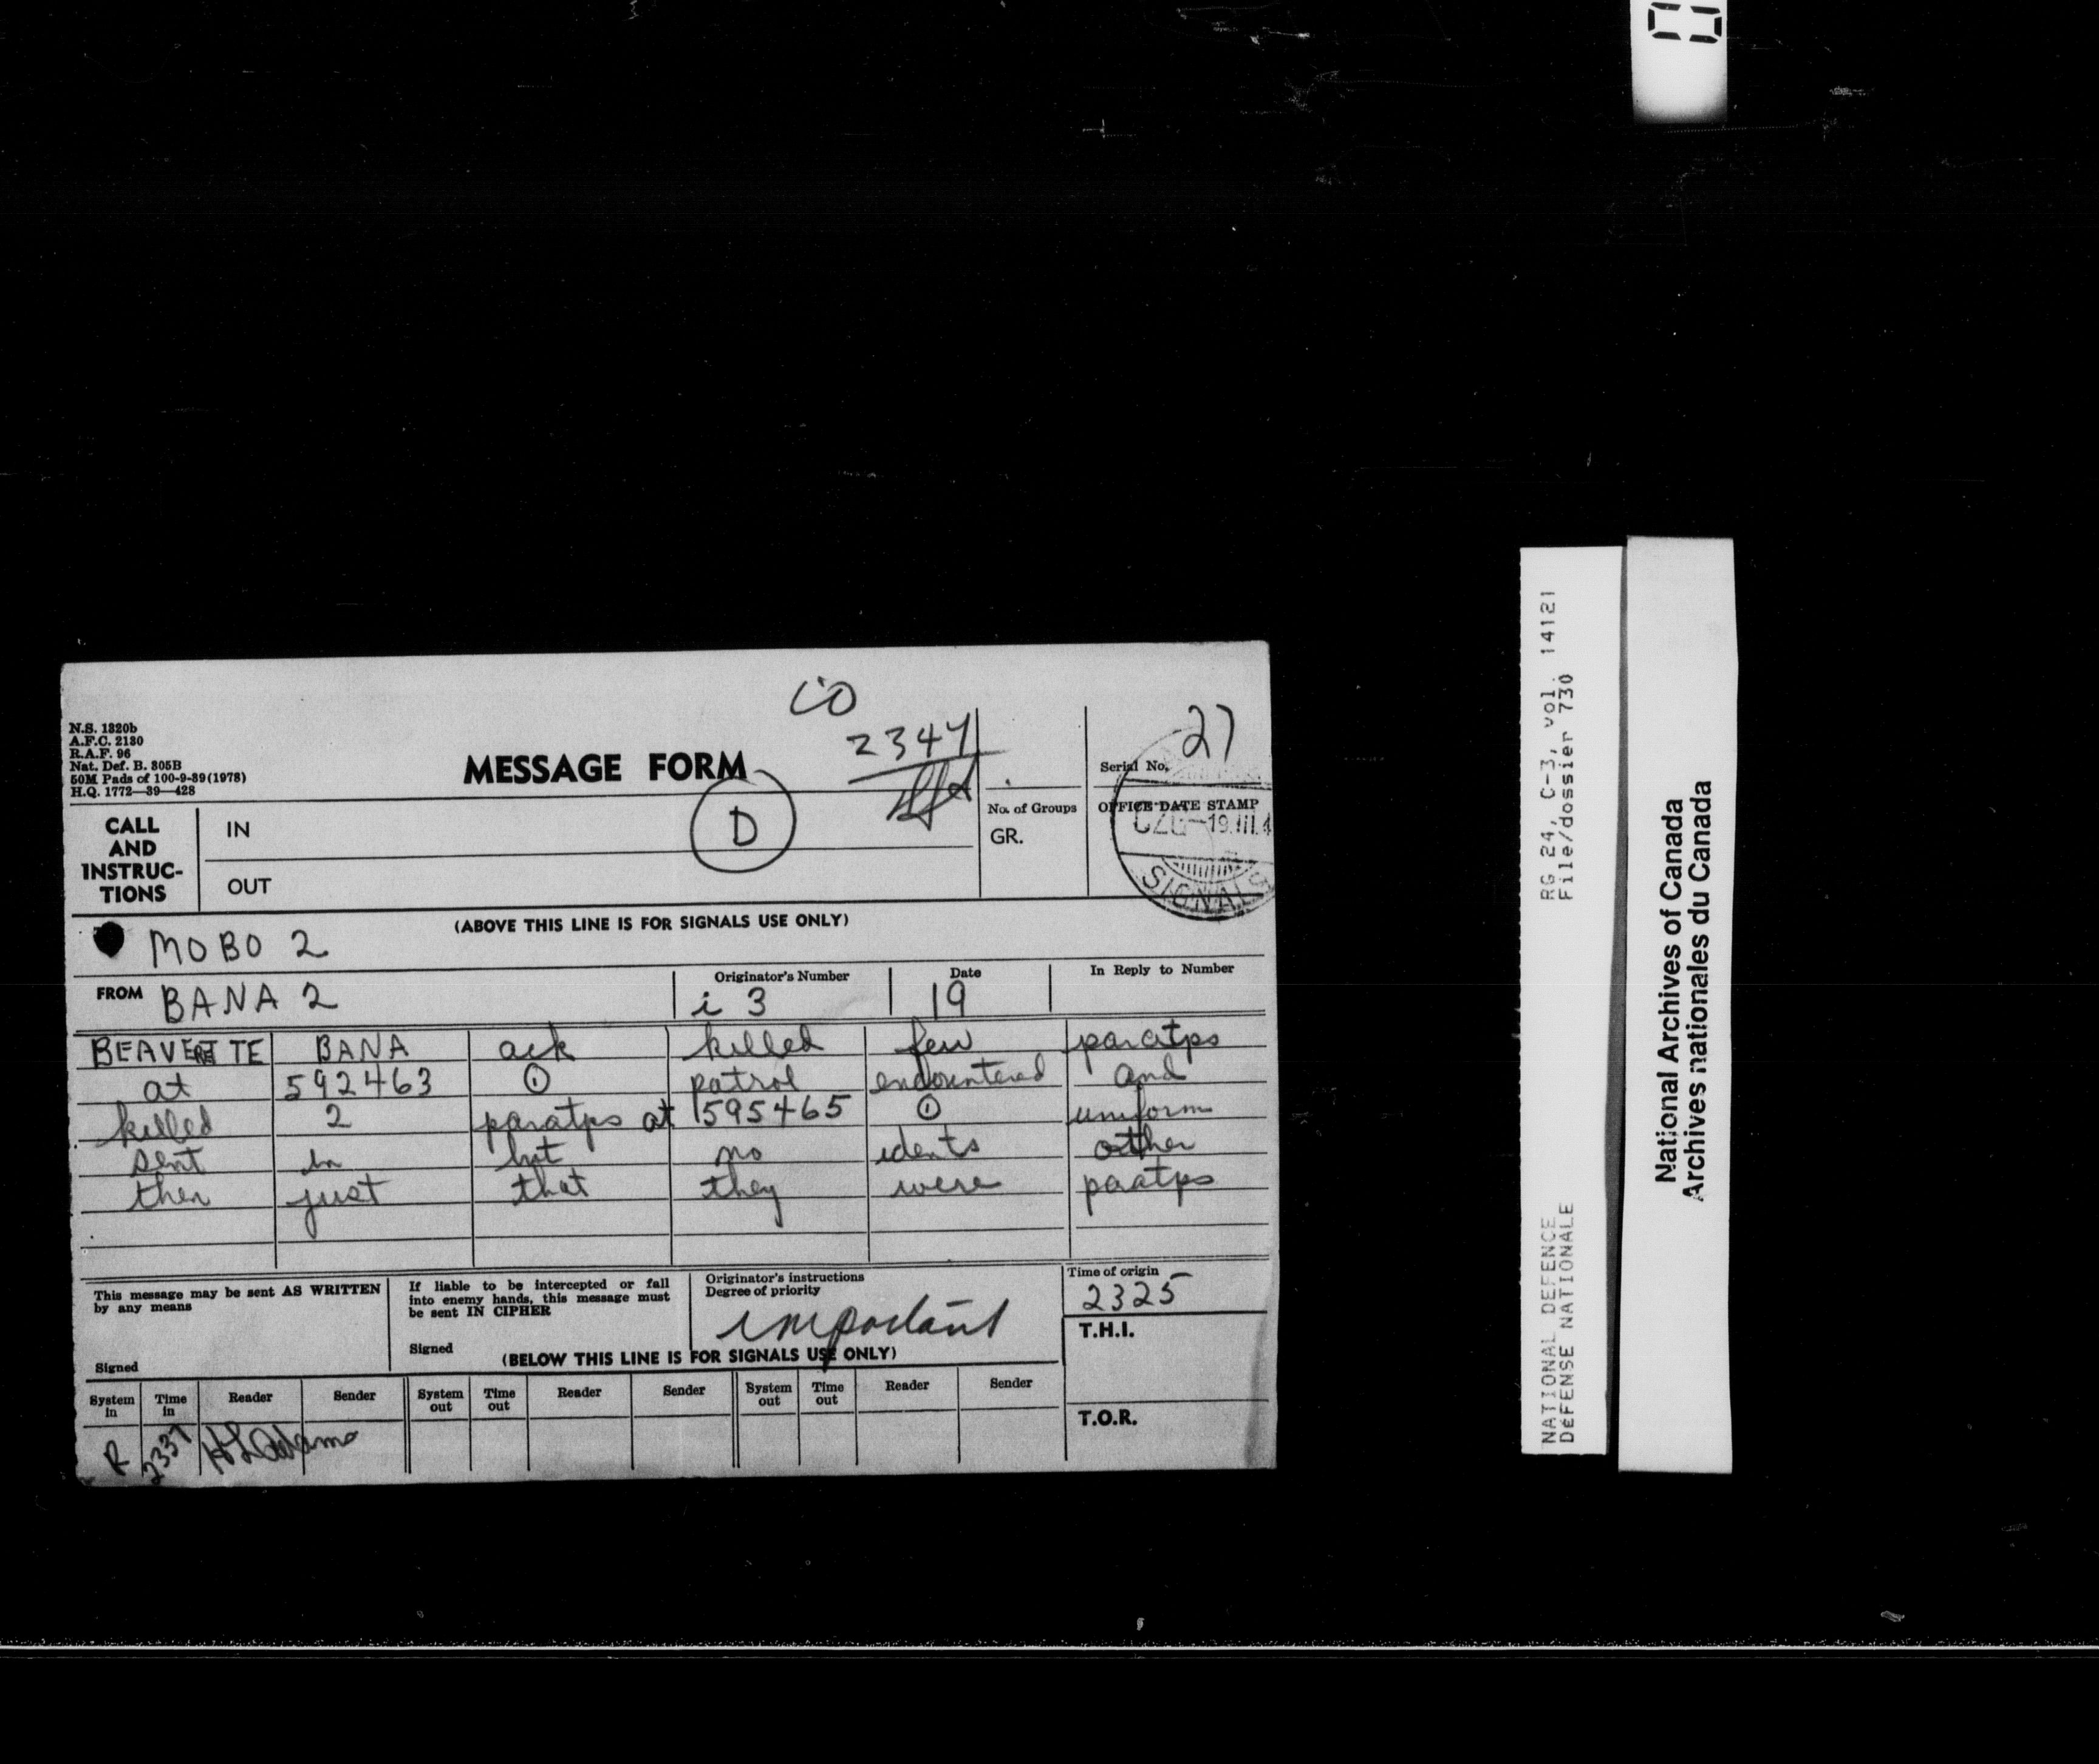 N.S. 1320b
A.F.C. 2130
R.A.F. 96
Nat. Def. B. 305B
50M Pads of 100-9-39 (1978)
H.Q. 1772—39—428
MESSAGE FORM
2347
27
Serial No.
D
CALL AND INSTRUC-TIONS
IN
OUT
No. of Groups
GR.
OFFICE DATE STAMP
19.III.4
SIGNALS
(ABOVE THIS LINE IS FOR SIGNALS USE ONLY)
MOBO 2
FROM BANA 2
Originator's Number
i 3
Date
19
In Reply to Number
BEAVERETTE BANA ack killed few paratps
at 592463 ① patrol encountered and
killed 2 paratps at 595465 ① uniform
sent in but no idents other
then just that they were paatps
This message may be sent AS WRITTEN
by any means
Signed
If liable to be intercepted or fall
into enemy hands, this message must
be sent IN CIPHER
Signed
Originator's instructions
Degree of priority
important
Time of origin
2325
T.H.I.
T.O.R.
(BELOW THIS LINE IS FOR SIGNALS USE ONLY)
System in Time in Reader Sender System out Time out Reader Sender System out Time out Reader Sender
R 2337 HLAdams
RG 24, C-3, vol. 14121
File/dossier 730
NATIONAL DEFENCE
DéFENSE NATIONALE
National Archives of Canada
Archives nationales du Canada